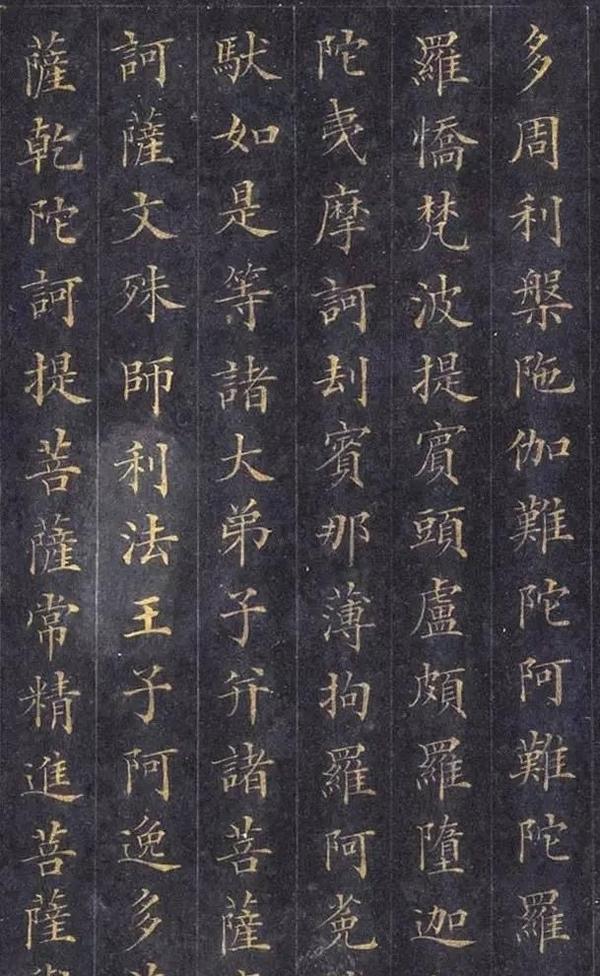 多周利槃陁伽難陀阿難陀羅
羅憍梵波提賓頭盧頗羅墮迦
陀夷摩訶刦賓那薄拘羅阿㝹
馱如是等諸大弟子幷諸菩薩
訶薩文殊師利法王子阿逸多
薩乾陀訶提菩薩常精進菩薩